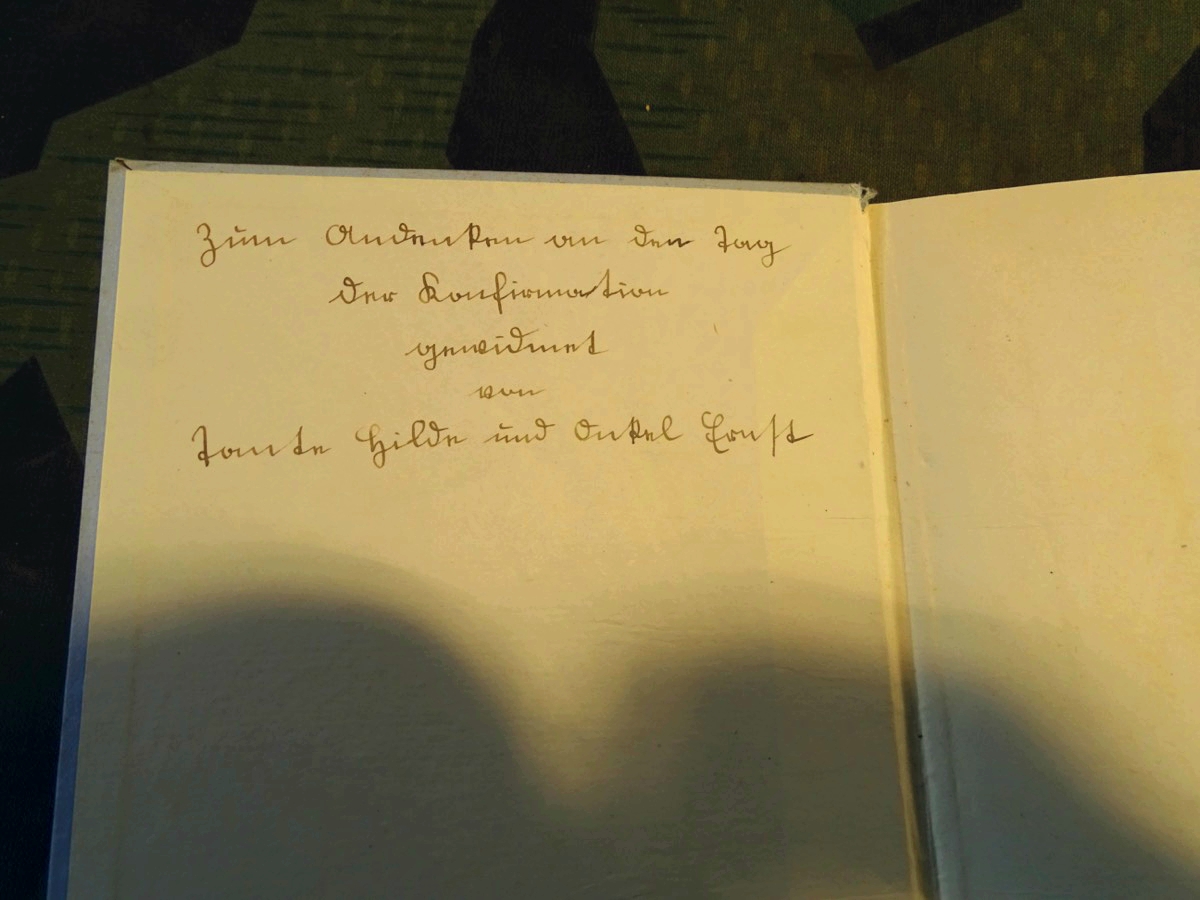 Zum Andenken an den Tag
der Konfirmation
gewidmet
von
Tante Hilde und Onkel Ernst